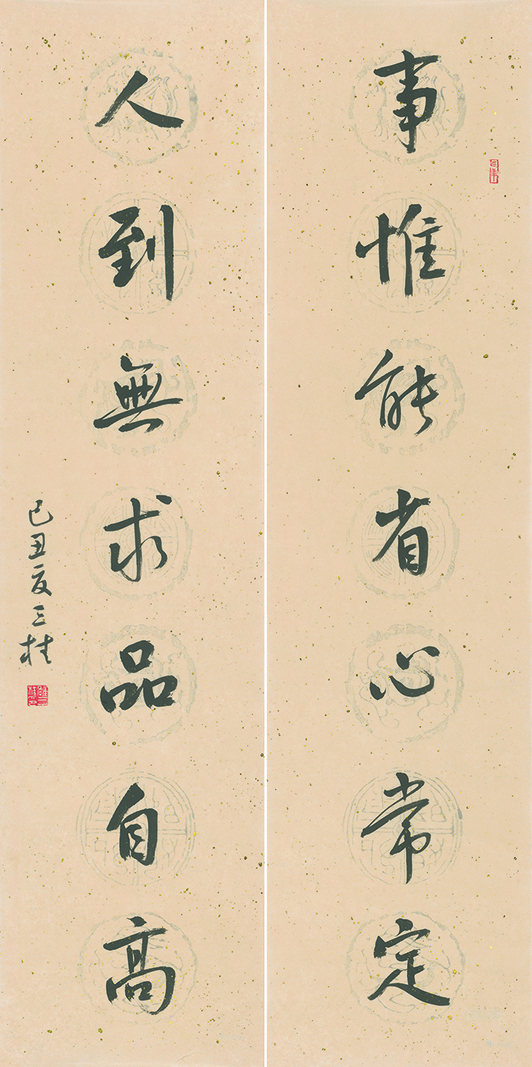 事惟能省心常定
人到無求品自高
己丑夏三桂